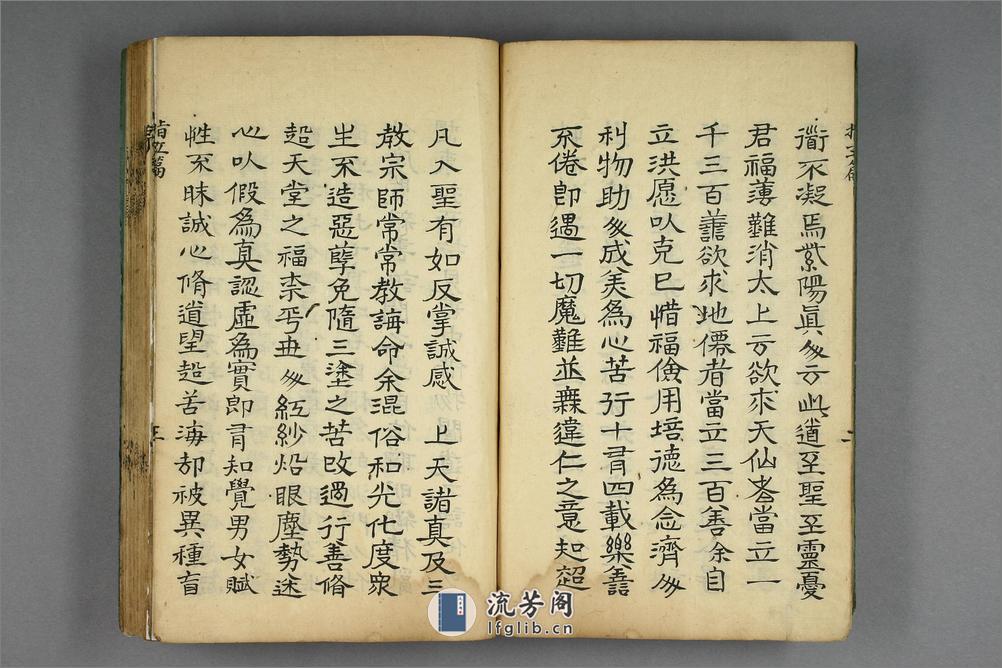 衢不凝焉紫陽眞人云此道至聖至靈憂
君福薄難消太上云欲求天仙者當立一
千三百善欲求地僊者當立三百善余自
立洪愿以克己惜福儉用培德為念濟人
利物助人成美為心苦行十有四載樂善
不倦即遇一切魔難並無違仁之意知超
凡入聖有如反掌誠感 上天諸真及三
教宗師常常教誨命余混俗和光化度眾
生不造惡孽免隨三塗之苦改過行善脩
超天堂之福柰乎世人紅紗炤眼塵勢迷
心以假為真認虛為實即有知覺男女賦
性不昧誠心脩道望超苦海却被異種盲
二
三
流芳阁
lfglib.cn